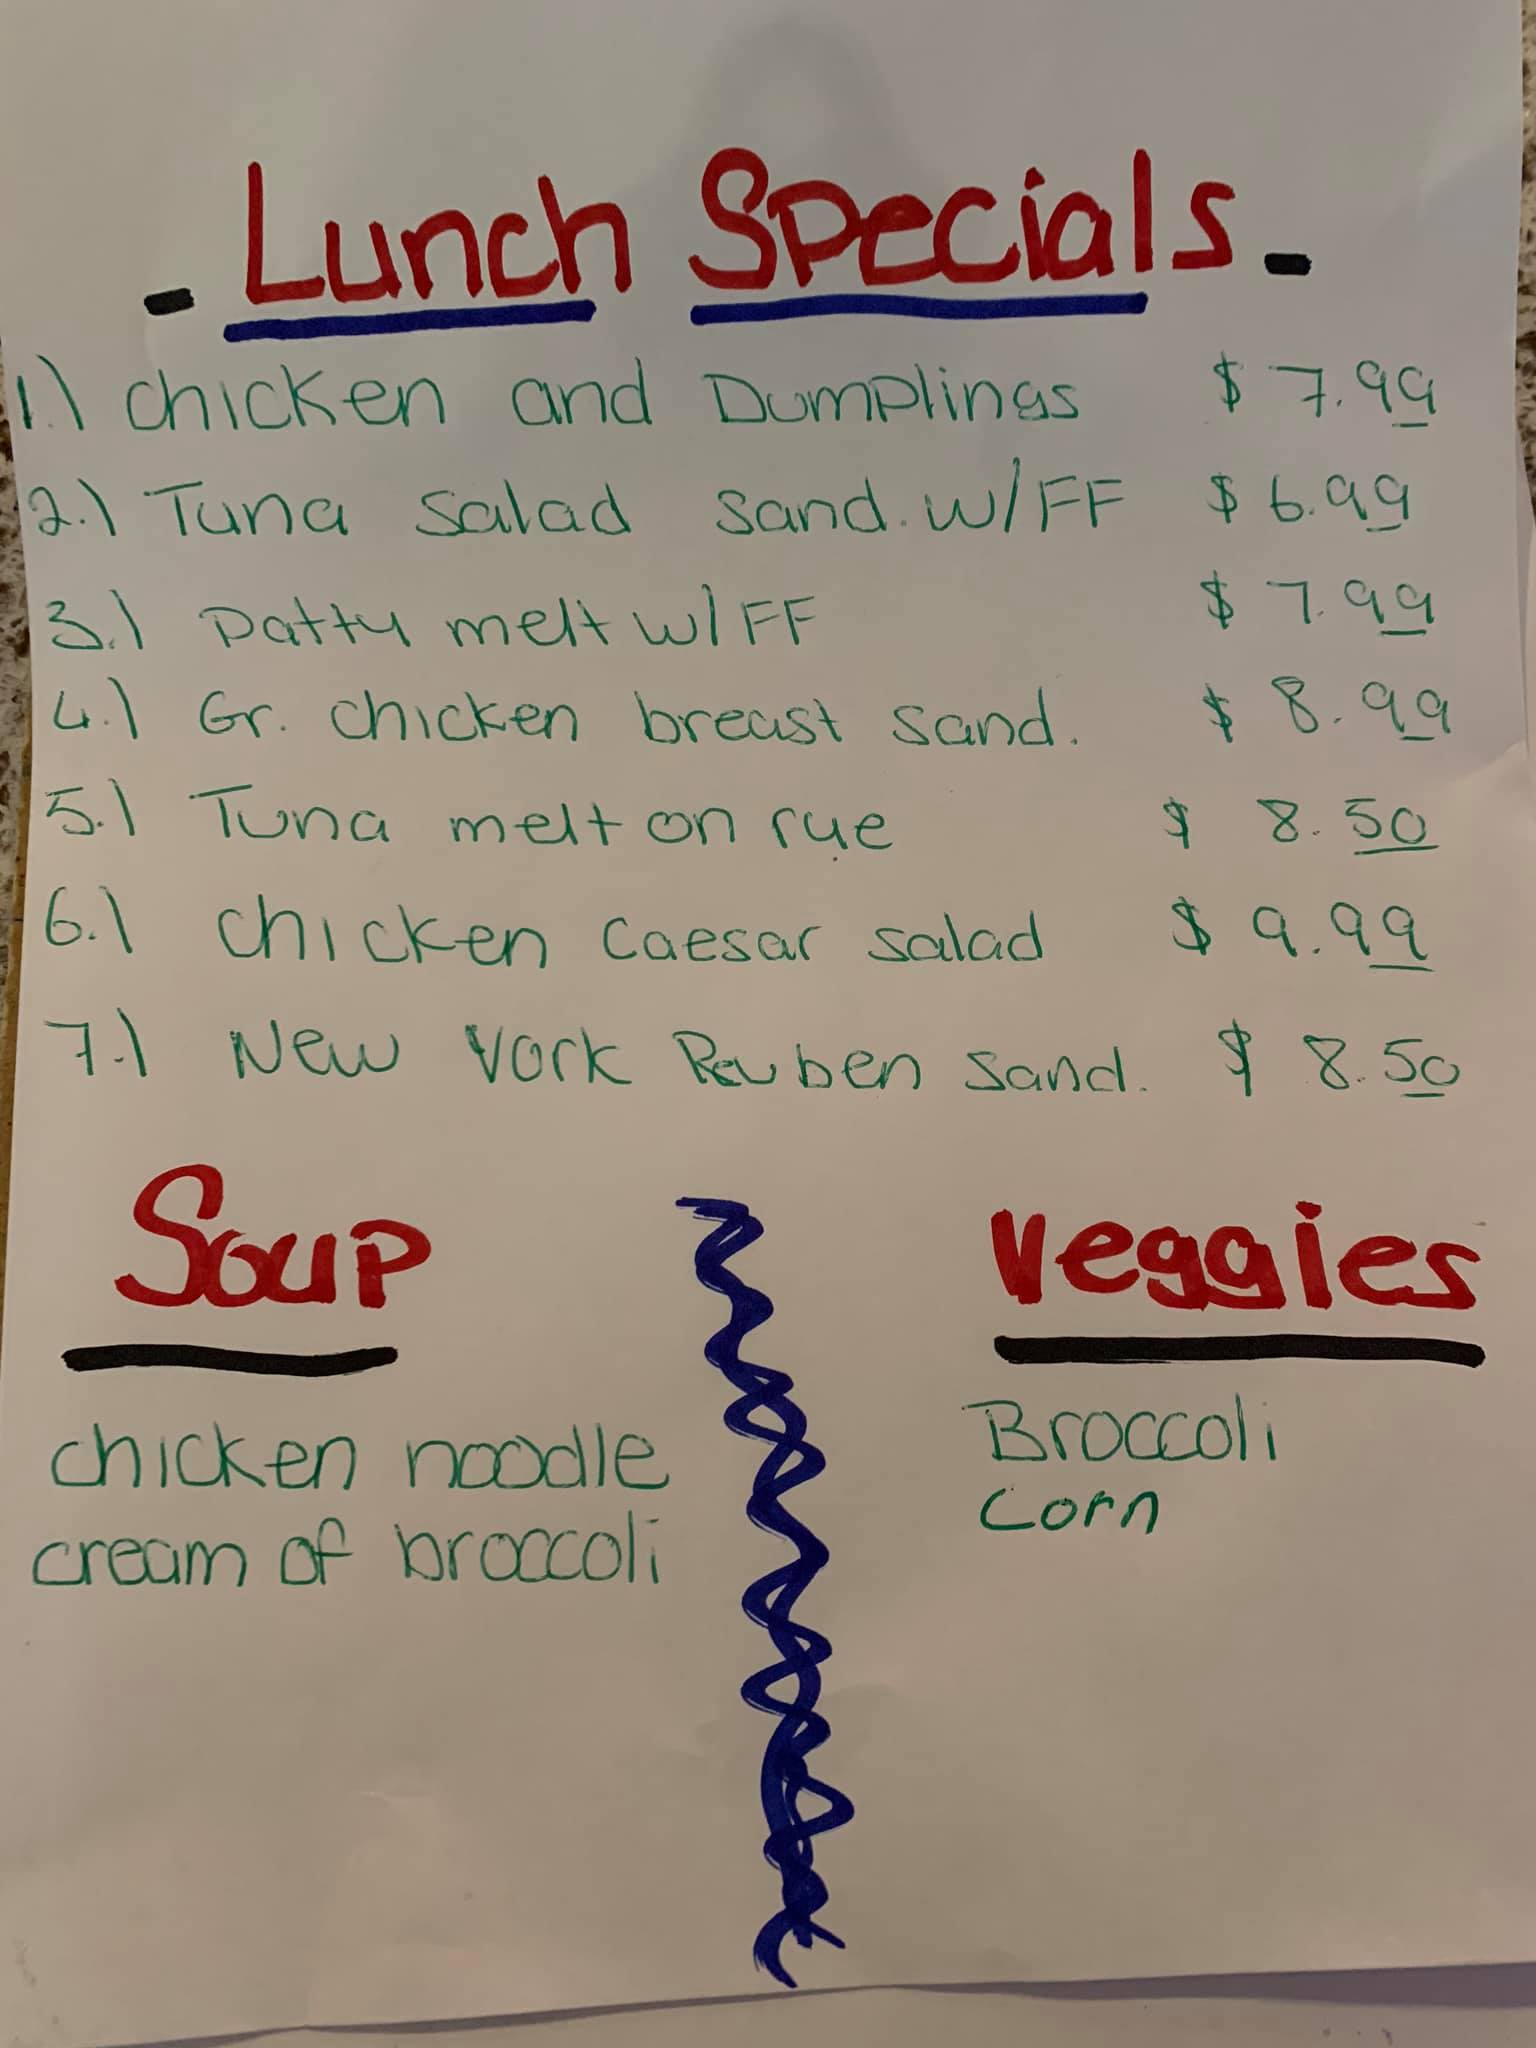 - Lunch Specials -
1.) chicken and Dumplings $ 7.99
2.) Tuna Salad Sand. w/FF $ 6.99
3.) Patty melt w/FF $ 7.99
4.) Gr. chicken breast sand. $ 8.99
5.) Tuna melt on rye $ 8.50
6.) chicken caesar salad $ 9.99
7.) New York Reuben sand. $ 8.50
Soup
chicken noodle
cream of broccoli
Veggies
Broccoli
corn